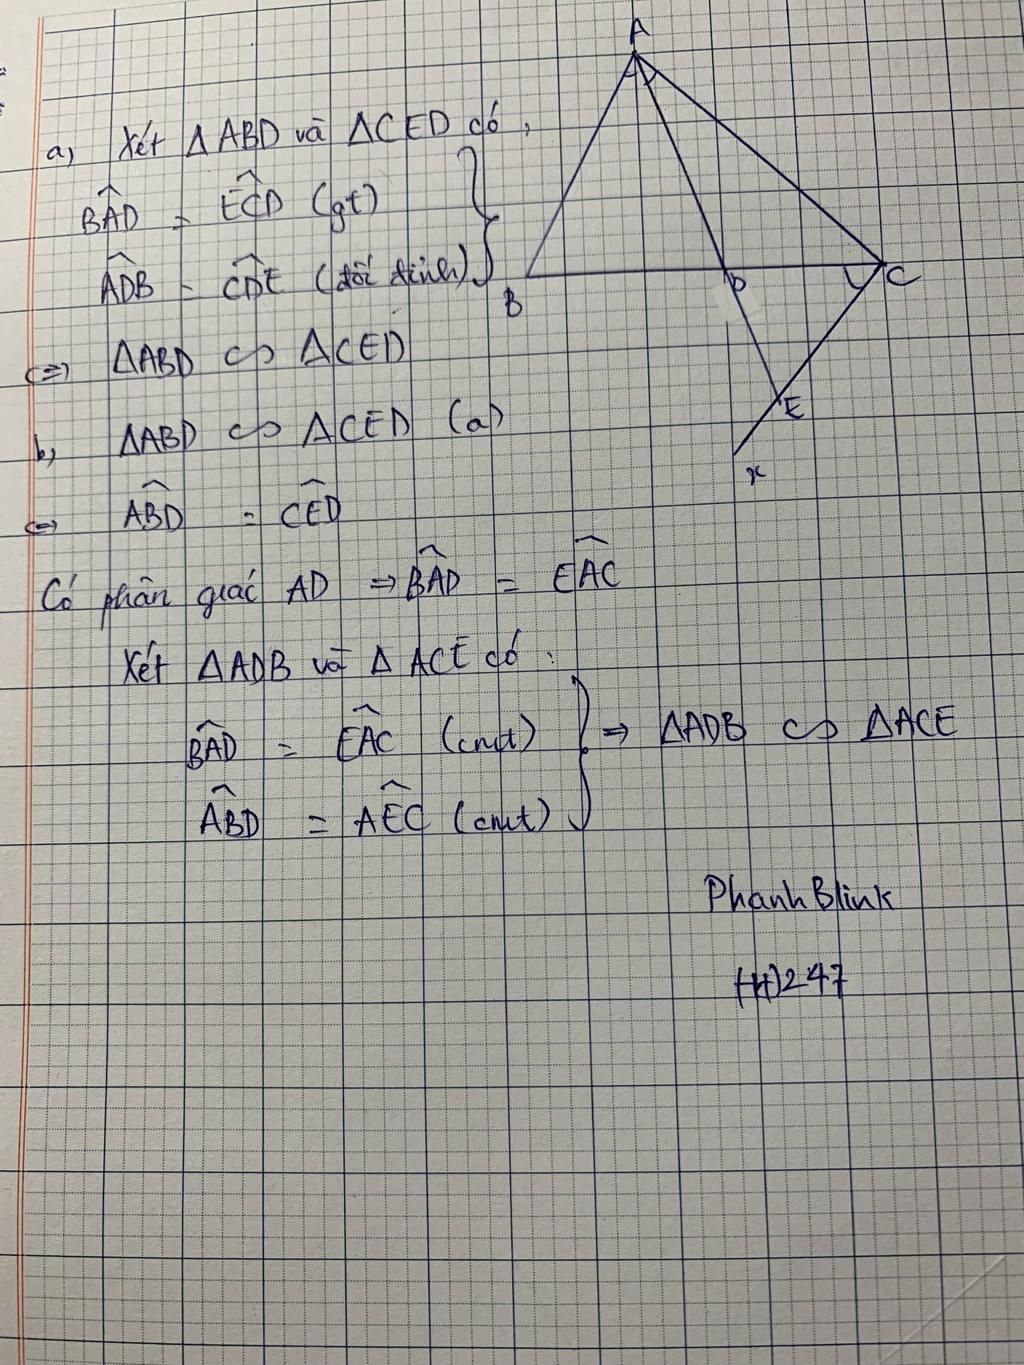 A
a, Xét ΔABD và ΔCED có,
BAD = ECD (gt)
ADB = CDE (đối đỉnh)
B
D
C
(=) ΔABD ∽ ΔCED
E
b, ΔABD ∽ ΔCED (a)
x
(=) ABD = CED
Có phân giác AD ⇒ BAD = EAC
Xét ΔADB và ΔACE có:
BAD = EAC (cmt)
⇒ ΔADB ∽ ΔACE
ABD = AEC (cmt)
PhanhBlink
(H)247